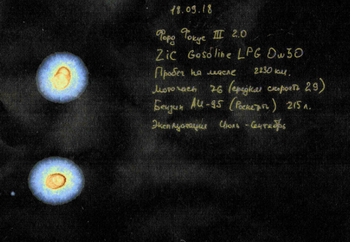 18.09.18
Форд Фокус III 2.0
ZiC Gasoline LPG 0w30
Пробег на масле 2230 км.
Моточасы 76 (средняя скорость 29)
Бензин АИ-95 (Роснефть) 215 л.
Эксплуатация Июль - Сентябрь